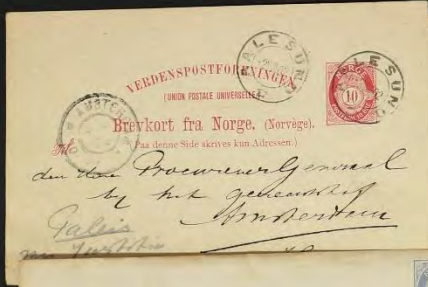 AALESUND
VERDENSPOSTFORENINGEN
(UNION POSTALE UNIVERSELLE)
NORGE
10
AALESUND
AMSTERDAM
Brevkort fra Norge. (Norvège).
(Paa denne Side skrives kun Adressen.)
den Procureur Generaal
by het gerechtshof
Amsterdam
Paleis
van Justitie